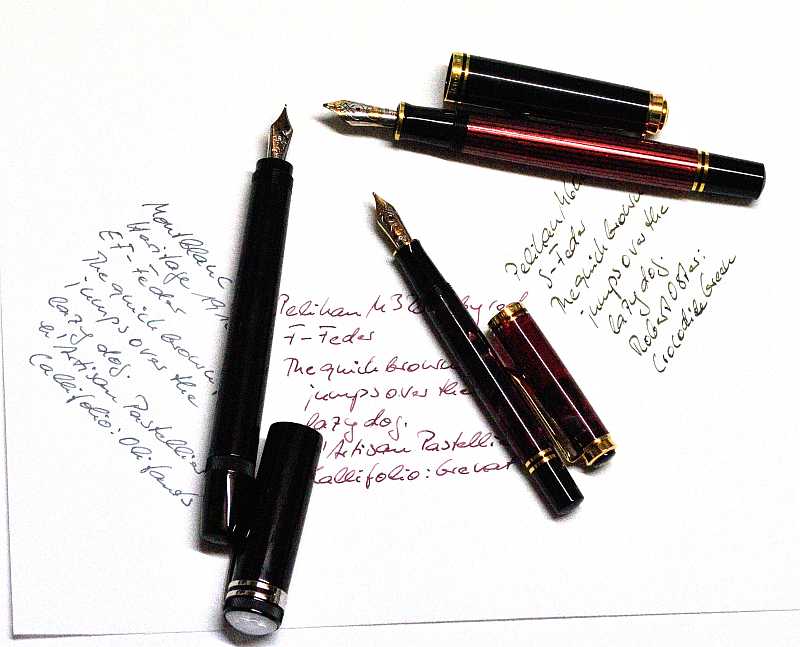 Montblanc
Heritage 1912
EF-Feder
The quick brown
jumps over the
lazy dog.
L'Artisan Pastellier
Callifolio: Olifants
Pelikan M32 Ruby red
F-Feder
The quick brown
jumps over the
lazy dog.
L'Artisan Pastelli
Callifolio: Grenat
Pelikan M60
F-Feder
The quick brown
jumps over the
lazy dog.
Robert Oster:
Crocodile Green